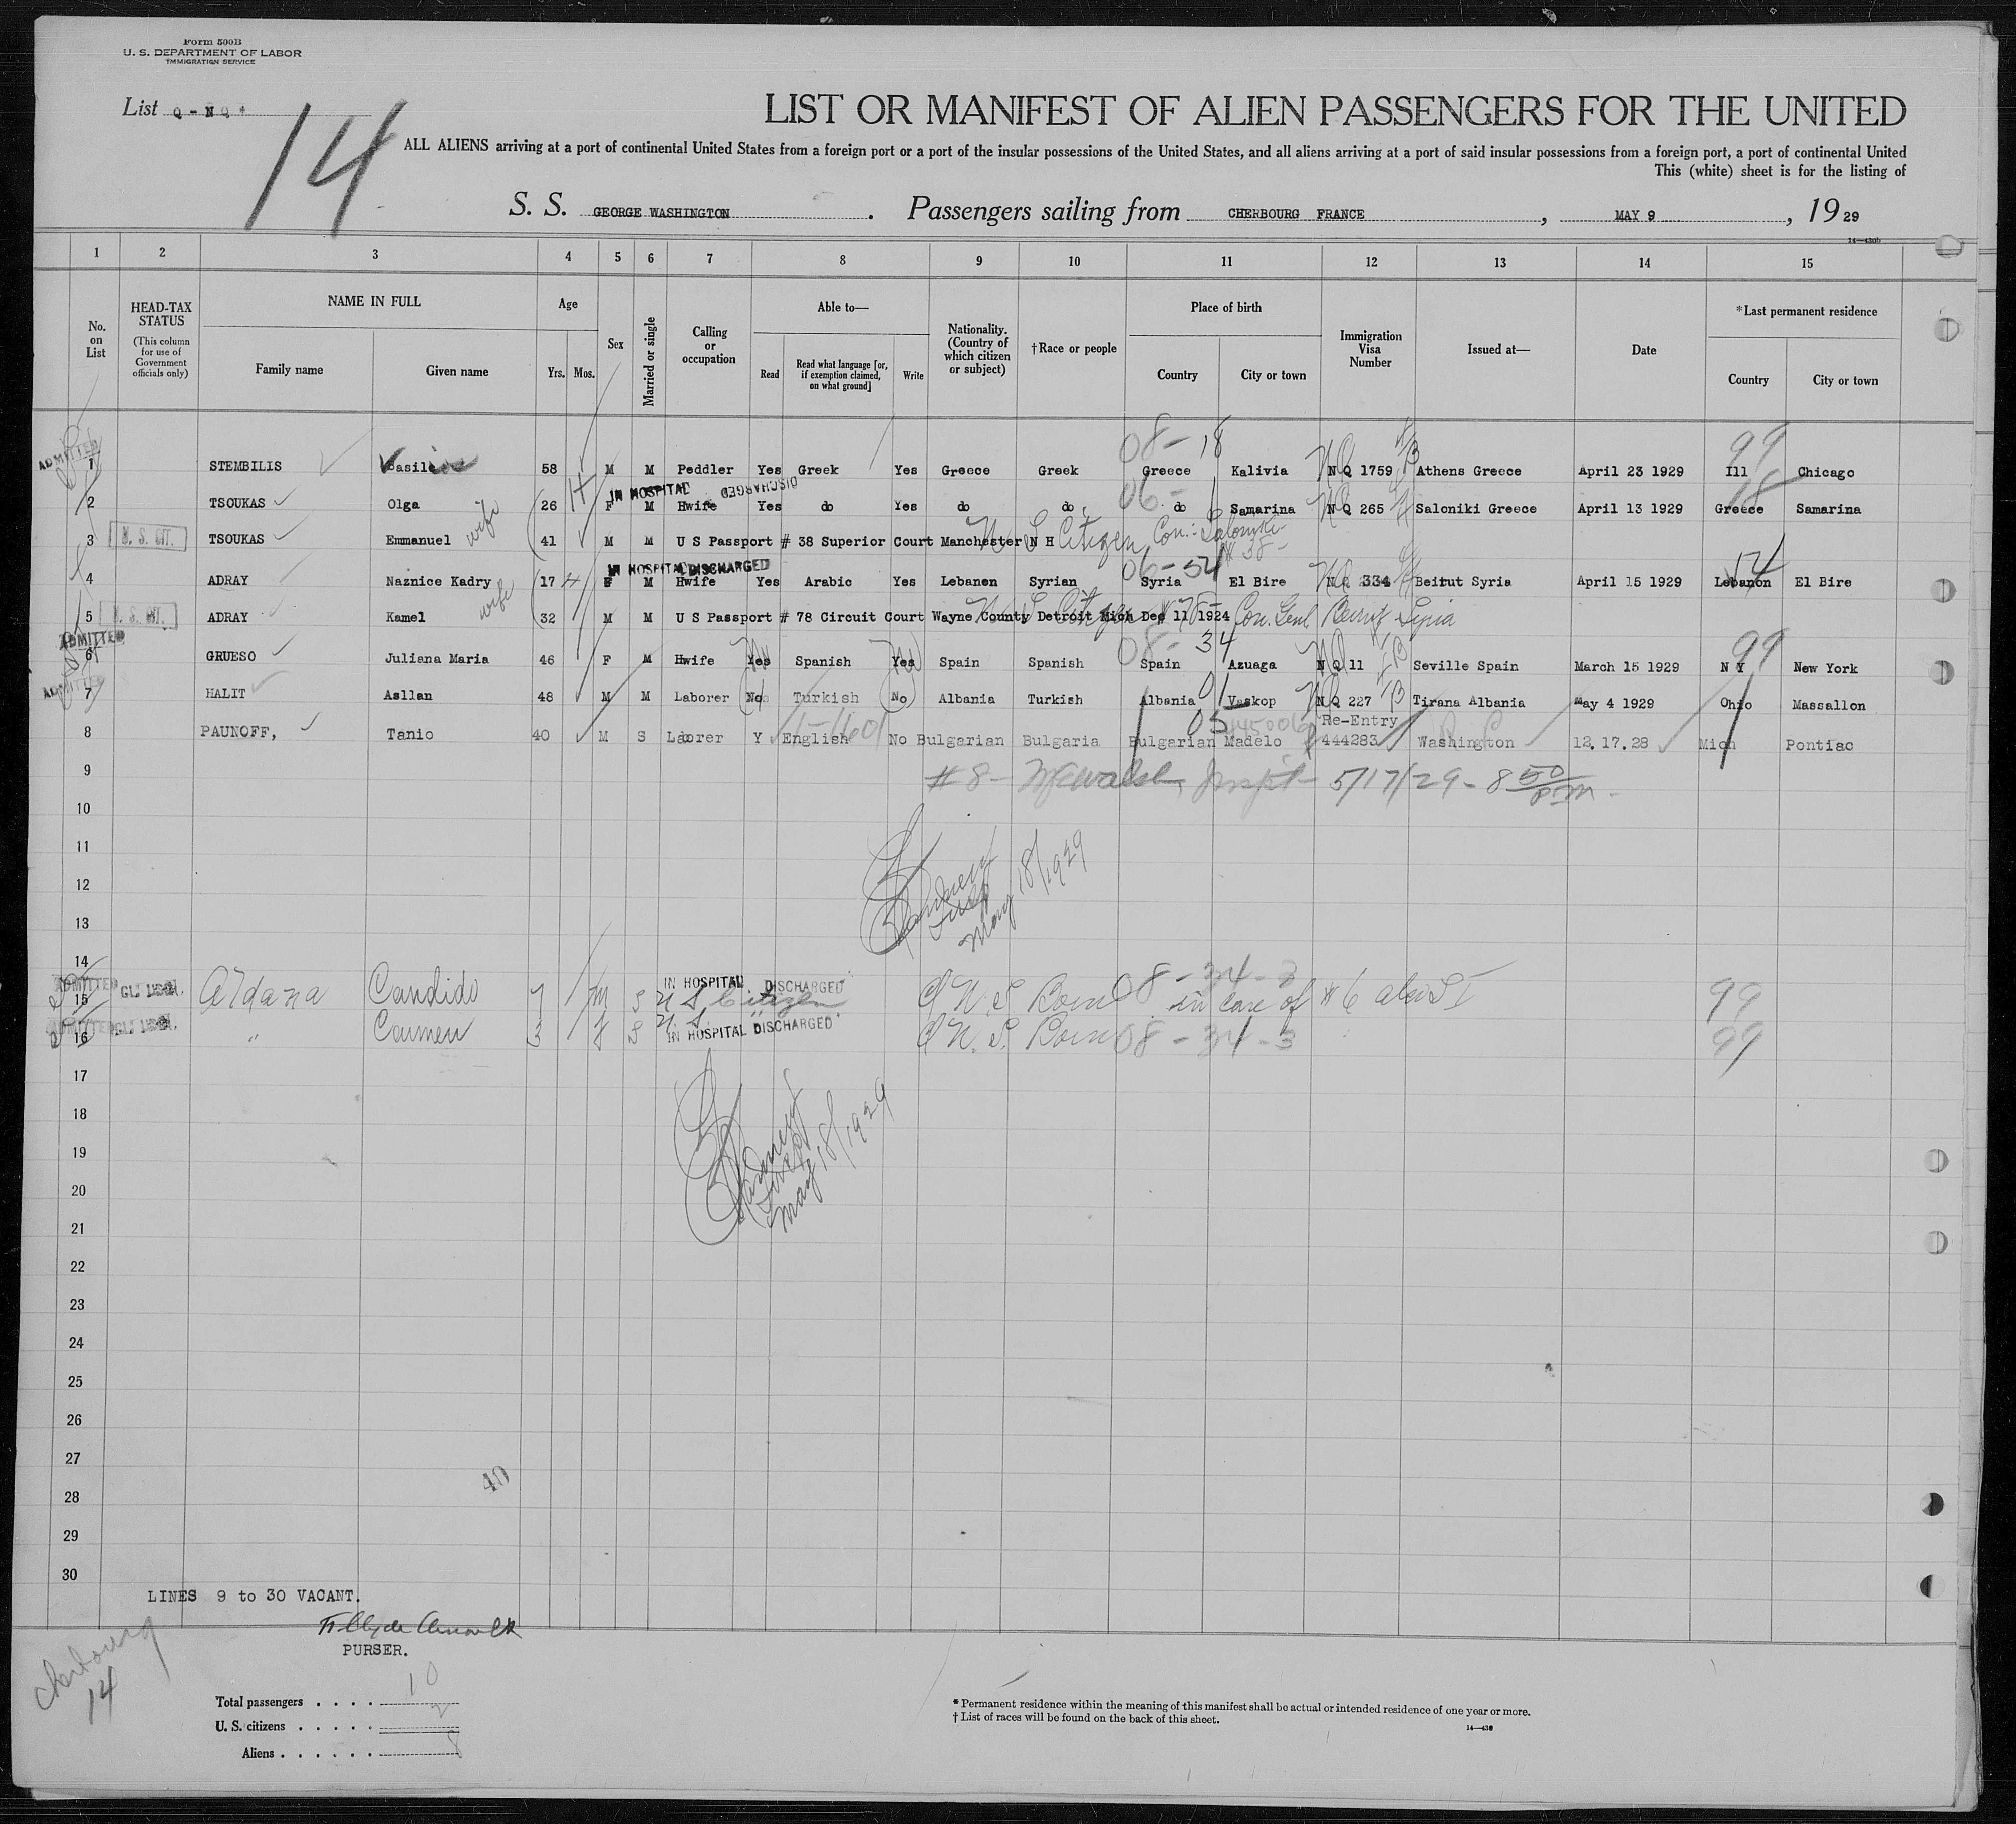 Form 500B
U. S. DEPARTMENT OF LABOR
IMMIGRATION SERVICE
List Q - NQ
14
LIST OR MANIFEST OF ALIEN PASSENGERS FOR THE UNITED
ALL ALIENS arriving at a port of continental United States from a foreign port or a port of the insular possessions of the United States, and all aliens arriving at a port of said insular possessions from a foreign port, a port of continental United
This (white) sheet is for the listing of
S. S. GEORGE WASHINGTON . Passengers sailing from CHERBOURG FRANCE , MAY 9 , 19 29
14—430b
1 2 3 4 5 6 7 8 9 10 11 12 13 14 15
No. on List
HEAD-TAX STATUS
(This column for use of Government officials only)
NAME IN FULL
Family name Given name
Age
Yrs. Mos.
Sex
Married or single
Calling or occupation
Able to—
Read
Read what language [or, if exemption claimed, on what ground]
Write
Nationality. (Country of which citizen or subject)
†Race or people
Place of birth
Country City or town
Immigration Visa Number
Issued at—
Date
*Last permanent residence
Country City or town
08-18 99
ADMITTED
1 STEMBILIS Basilios 58 M M Peddler Yes Greek Yes Greece Greek Greece Kalivia N Q 1759 Athens Greece April 23 1929 Ill Chicago
IN HOSPITAL DISCHARGED 06-
2 TSOUKAS Olga wife 26 F M Hwife Yes do Yes do do do Samarina N Q 265 Saloniki Greece April 13 1929 Greece Samarina
3 U. S. CIT. TSOUKAS Emmanuel 41 M M U S Passport # 38 Superior Court Manchester N H U S Citizen Con: Saloniki # 38-
IN HOSPITAL DISCHARGED 06-54 54
4 ADRAY Naznice Kadry wife 17 F M Hwife Yes Arabic Yes Lebanen Syrian Syria El Bire N Q 334 Beirut Syria April 15 1929 Lebanon El Bire
5 U. S. CIT. ADRAY Kamel 32 M M U S Passport # 78 Circuit Court Wayne County Detroit Mich Dec 11 1924 U S Citizen # 78- Con. Genl Beirut Syria
ADMITTED 08-34 99
6 GRUESO Juliana Maria 46 F M Hwife Yes Spanish Yes Spain Spanish Spain Azuaga N Q 11 Seville Spain March 15 1929 N Y New York
ADMITTED
7 HALIT Asllan 48 M M Laborer No Turkish No Albania Turkish Albania Vaskop N Q 227 Tirana Albania May 4 1929 Ohio Massallon
Re-Entry
8 PAUNOFF, Tanio 40 M S Laborer Y English No Bulgarian Bulgaria Bulgarian Madelo 444283 Washington 12.17.28 Mich Pontiac
9 #8- 5/17/29 - 8 50 P.M.
10
11
12
May 18/1929
13
14
IN HOSPITAL DISCHARGED 08-34-3
15 ADMITTED Aldana Candido 7 m S U S Citizen U. S. Born in care of #6 above 99
16 ADMITTED " Carmen 3 f S U. S. " U. S. Born 08-34-3 99
IN HOSPITAL DISCHARGED
17
18
19
May 18/1929
20
21
22
23
24
25
26
27
40
28
29
30
LINES 9 to 30 VACANT.
PURSER.
Cherbourg
14
Total passengers . . . . 10
U. S. citizens . . . . . 2
Aliens . . . . . . 8
* Permanent residence within the meaning of this manifest shall be actual or intended residence of one year or more.
† List of races will be found on the back of this sheet.
14—430